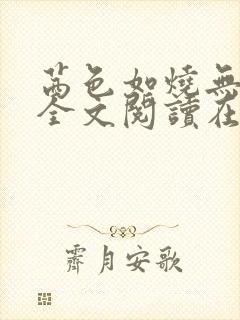 茜色如燒無
全文閱讀在
霽月安歌